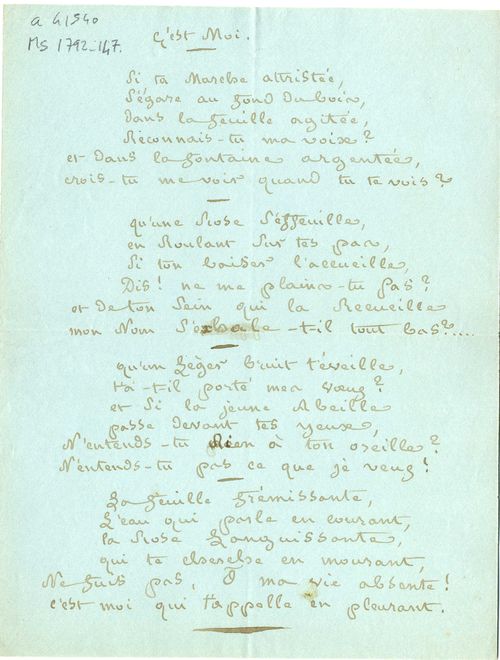 a 41940
Ms 1792-147.
C'est Moi.
Si ta Marche attristée,
S'égare au fond du bois,
Dans la feuille agitée,
Reconnais-tu ma voix?
et dans la fontaine argentée,
crois-tu me voir quand tu te vois?
qu'une Rose S'effeuille,
en Roulant Sur tes pas,
Si ton baiser l'accueille,
Dis! ne me plains-tu pas?
et de ton Sein qui la Recueille
mon Nom S'exhale-t-il tout bas?....
qu'un Léger bruit t'éveille,
t'a-t-il porté mes vœux?
et Si la jeune Abeille
passe devant tes yeux,
N'entends-tu Rien à ton oreille?
N'entends-tu pas ce que je veux!
La feuille frémissante,
L'eau qui parle en courant,
la Rose Languissante,
qui te cherche en mourant,
Ne fuis pas, Ô ma vie absente!
c'est moi qui t'appelle en pleurant.